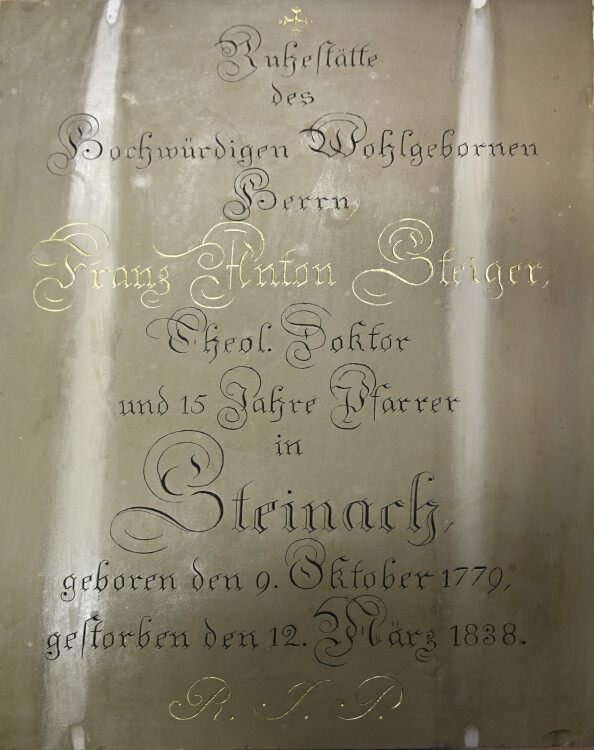 Ruheſtätte
des
Hochwürdigen Wohlgebornen
Herrn
Franz Anton Steiger,
Theol. Doktor
und 15 Jahre Pfarrer
in
Steinach,
geboren den 9. Oktober 1779,
geſtorben den 12. März 1838.
R. I. P.